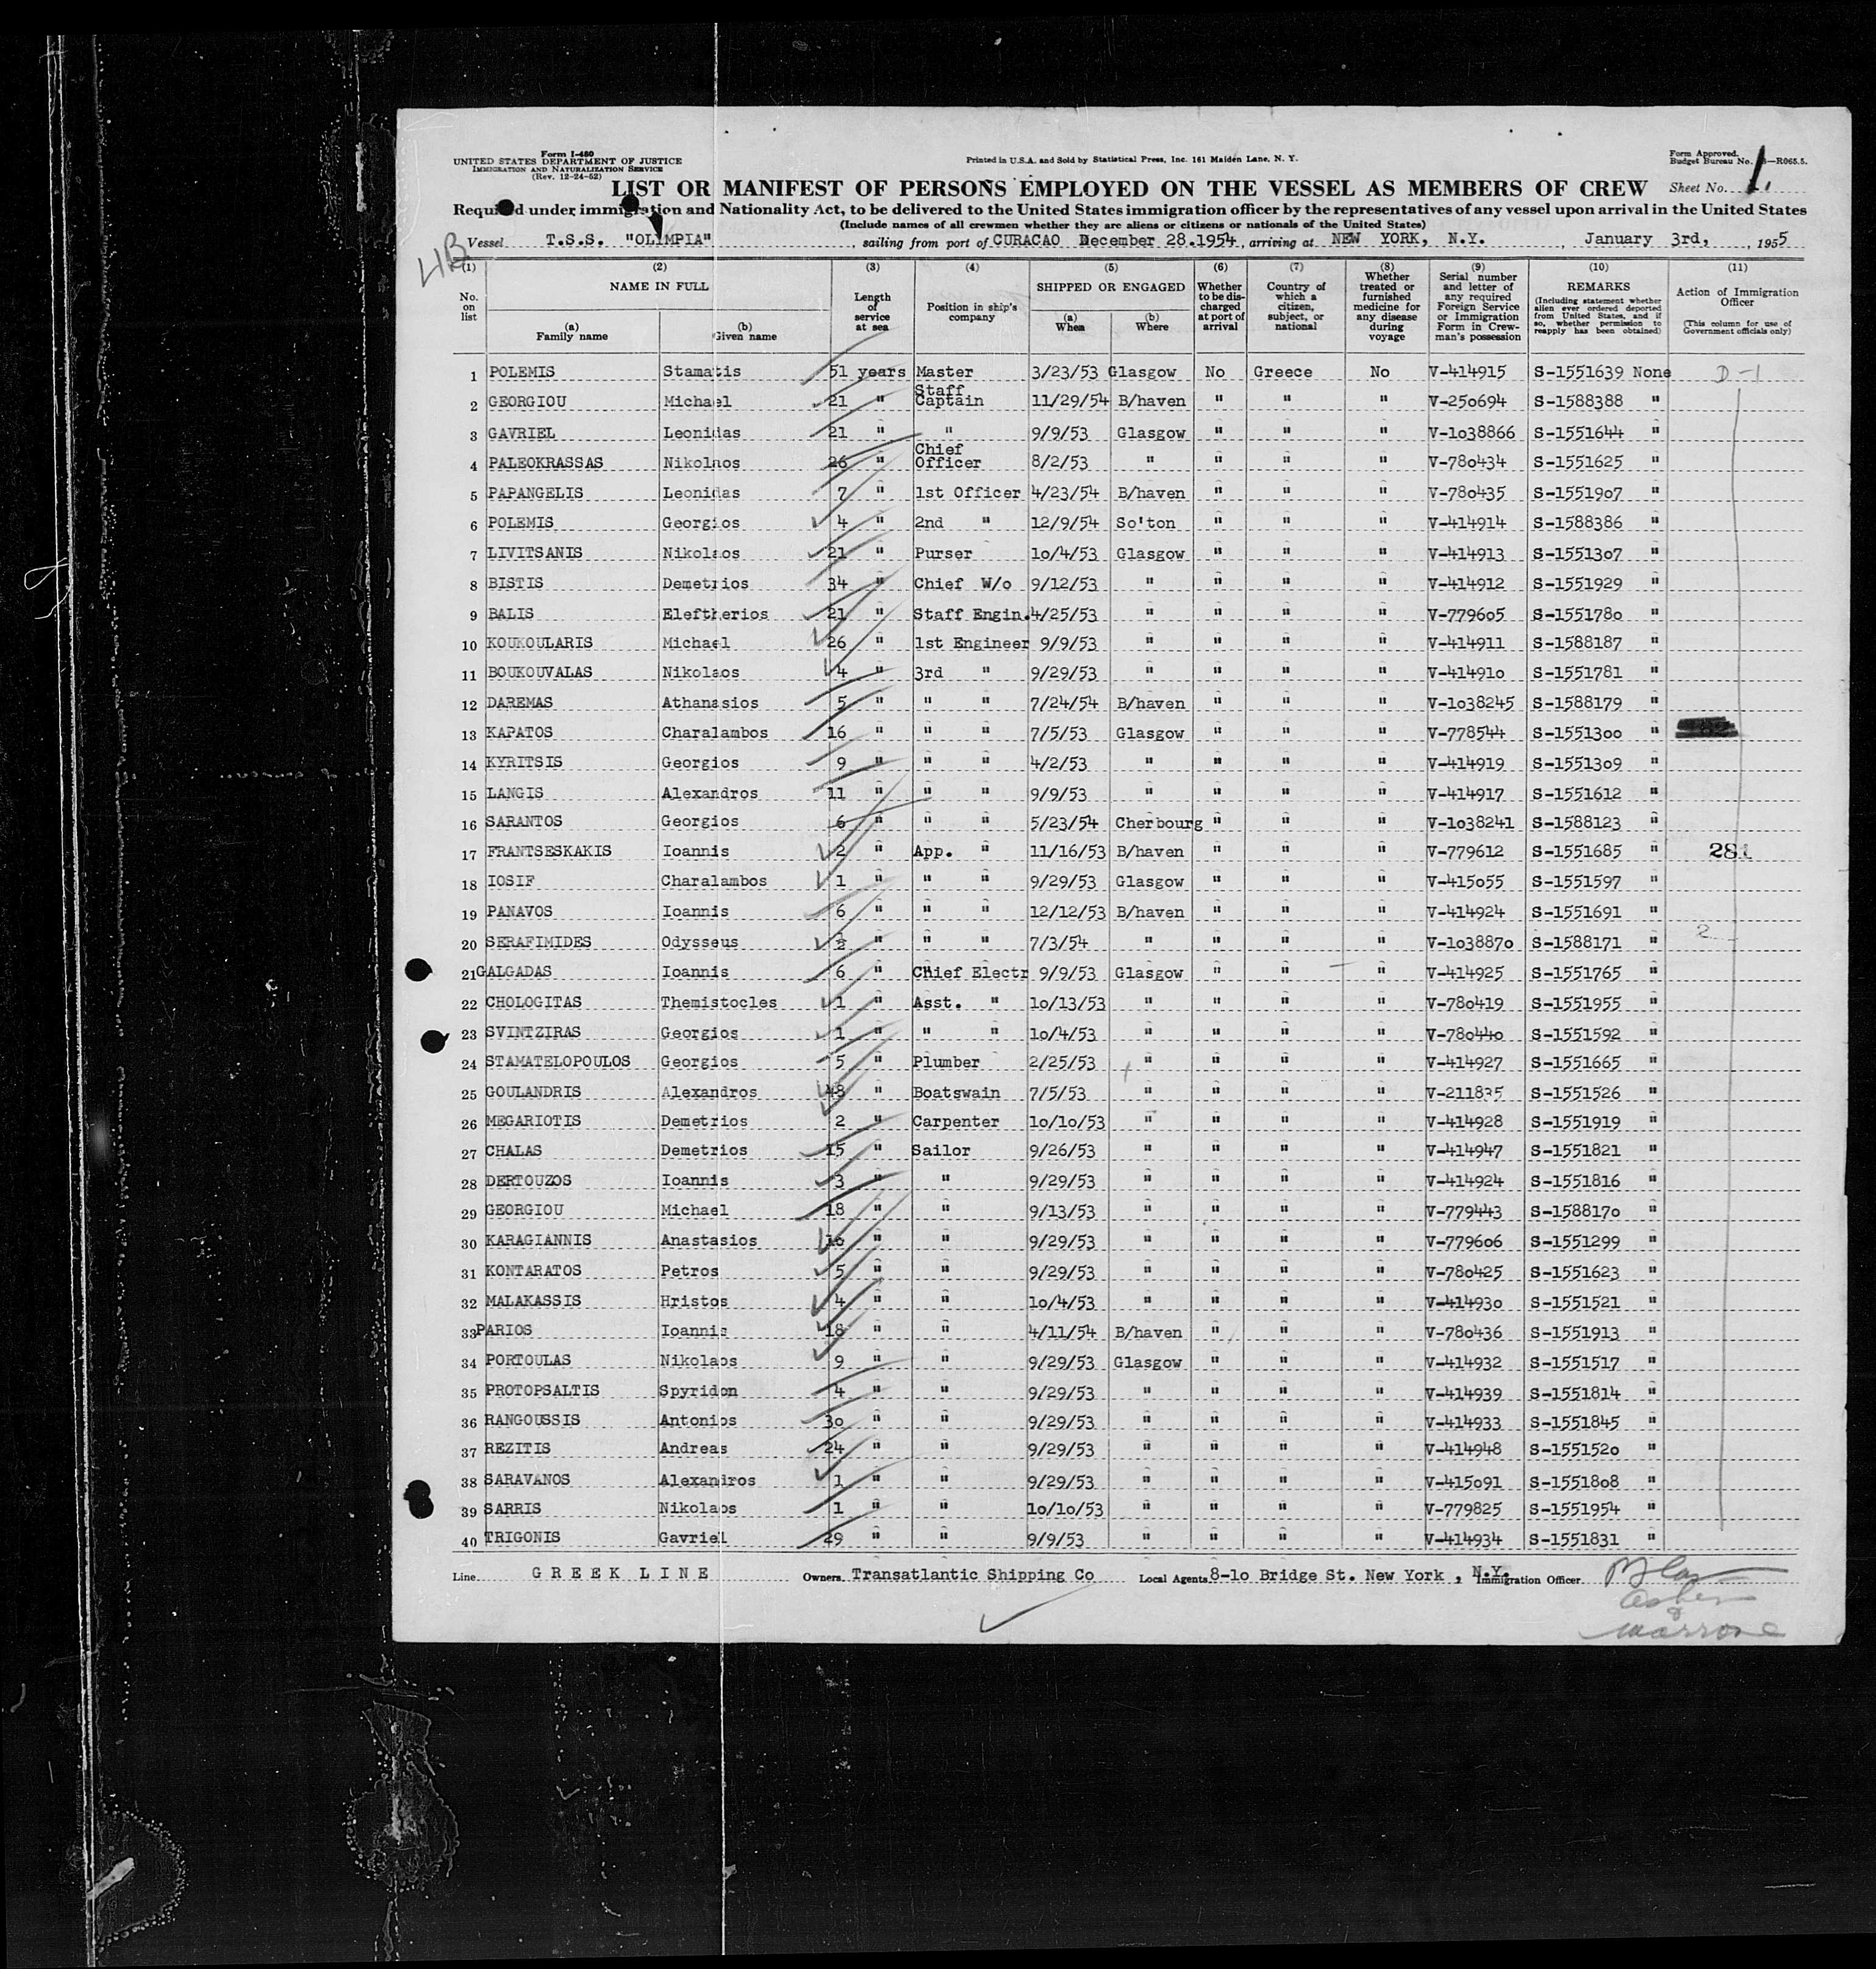 Form I-480
UNITED STATES DEPARTMENT OF JUSTICE
IMMIGRATION AND NATURALIZATION SERVICE
(Rev. 12-24-52)
Printed in U.S.A. and Sold by Statistical Press, Inc. 161 Maiden Lane, N. Y.
Form Approved.
Budget Bureau No. —R065.5.
LIST OR MANIFEST OF PERSONS EMPLOYED ON THE VESSEL AS MEMBERS OF CREW
Sheet No. 1.
Required under immigration and Nationality Act, to be delivered to the United States immigration officer by the representatives of any vessel upon arrival in the United States
(Include names of all crewmen whether they are aliens or citizens or nationals of the United States)
Vessel T.S.S. "OLIMPIA", sailing from port of CURACAO December 28.1954, arriving at NEW YORK, N.Y. January 3rd, 1955
(1) (2) (3) (4) (5) (6) (7) (8) (9) (10) (11)
No. on list
NAME IN FULL
(a) Family name
(b) Given name
Length of service at sea
Position in ship's company
SHIPPED OR ENGAGED
(a) When
(b) Where
Whether to be discharged at port of arrival
Country of which a citizen, subject, or national
Whether treated or furnished medicine for any disease during voyage
Serial number and letter of any required Foreign Service or Immigration Form in Crewman's possession
REMARKS
(Including statement whether alien ever ordered deported from United States, and if so, whether permission to reapply has been obtained)
Action of Immigration Officer
(This column for use of Government officials only)
1 POLEMIS Stamatis 51 years Master 3/23/53 Glasgow No Greece No V-414915 S-1551639 None D-1
2 GEORGIOU Michael 21 " Staff Captain 11/29/54 B/haven " " " V-250694 S-1588388 "
3 GAVRIEL Leonidas 21 " " 9/9/53 Glasgow " " " V-1038866 S-1551644 "
4 PALEOKRASSAS Nikolaos 26 " Chief Officer 8/2/53 " " " " V-780434 S-1551625 "
5 PAPANGELIS Leonidas 7 " 1st Officer 4/23/54 B/haven " " " V-780435 S-1551907 "
6 POLEMIS Georgios 4 " 2nd " 12/9/54 So'ton " " " V-414914 S-1588386 "
7 LIVITSANIS Nikolaos 21 " Purser 10/4/53 Glasgow " " " V-414913 S-1551307 "
8 BISTIS Demetrios 34 " Chief W/o 9/12/53 " " " " V-414912 S-1551929 "
9 BALIS Eleftherios 21 " Staff Engin. 4/25/53 " " " " V-779605 S-1551780 "
10 KOUKOULARIS Michael 26 " 1st Engineer 9/9/53 " " " " V-414911 S-1588187 "
11 BOUKOUVALAS Nikolaos 4 " 3rd " 9/29/53 " " " " V-414910 S-1551781 "
12 DAREMAS Athanasios 5 " " " 7/24/54 B/haven " " " V-1038245 S-1588179 "
13 KAPATOS Charalambos 16 " " " 7/5/53 Glasgow " " " V-778544 S-1551300 "
14 KYRITSIS Georgios 9 " " " 4/2/53 " " " " V-414919 S-1551309 "
15 LANGIS Alexandros 11 " " " 9/9/53 " " " " V-414917 S-1551612 "
16 SARANTOS Georgios 6 " " " 5/23/54 Cherbourg " " " V-1038241 S-1588123 "
17 FRANTSESKAKIS Ioannis 2 " App. " 11/16/53 B/haven " " " V-779612 S-1551685 " 281
18 IOSIF Charalambos 1 " " " 9/29/53 Glasgow " " " V-415055 S-1551597 "
19 PANAVOS Ioannis 6 " " " 12/12/53 B/haven " " " V-414924 S-1551691 "
20 SERAFIMIDES Odysseus ½ " " " 7/3/54 " " " " V-1038870 S-1588171 " 2
21 GALGADAS Ioannis 6 " Chief Electr 9/9/53 Glasgow " " " V-414925 S-1551765 "
22 CHOLOGITAS Themistocles 1 " Asst. " 10/13/53 " " " " V-780419 S-1551955 "
23 SVINTZIRAS Georgios 1 " " " 10/4/53 " " " " V-780440 S-1551592 "
24 STAMATELOPOULOS Georgios 5 " Plumber 2/25/53 " " " " V-414927 S-1551665 "
25 GOULANDRIS Alexandros 48 " Boatswain 7/5/53 " " " " V-211835 S-1551526 "
26 MEGARIOTIS Demetrios 2 " Carpenter 10/10/53 " " " " V-414928 S-1551919 "
27 CHALAS Demetrios 15 " Sailor 9/26/53 " " " " V-414947 S-1551821 "
28 DERTOUZOS Ioannis 3 " " 9/29/53 " " " " V-414924 S-1551816 "
29 GEORGIOU Michael 18 " " 9/13/53 " " " " V-779443 S-1588170 "
30 KARAGIANNIS Anastasios 16 " " 9/29/53 " " " " V-779606 S-1551299 "
31 KONTARATOS Petros 5 " " 9/29/53 " " " " V-780425 S-1551623 "
32 MALAKASSIS Hristos 4 " " 10/4/53 " " " " V-414930 S-1551521 "
33 PARIOS Ioannis 18 " " 4/11/54 B/haven " " " V-780436 S-1551913 "
34 PORTOULAS Nikolaos 9 " " 9/29/53 Glasgow " " " V-414932 S-1551517 "
35 PROTOPSALTIS Spyridon 4 " " 9/29/53 " " " " V-414939 S-1551814 "
36 RANGOUSSIS Antonios 30 " " 9/29/53 " " " " V-414933 S-1551845 "
37 REZITIS Andreas 24 " " 9/29/53 " " " " V-414948 S-1551520 "
38 SARAVANOS Alexandros 1 " " 9/29/53 " " " " V-415091 S-1551808 "
39 SARRIS Nikolaos 1 " " 10/10/53 " " " " V-779825 S-1551954 "
40 TRIGONIS Gavriel 29 " " 9/9/53 " " " " V-414934 S-1551831 "
Line GREEK LINE Owners Transatlantic Shipping Co Local Agents 8-10 Bridge St. New York, N.Y. Immigration Officer
Marrone